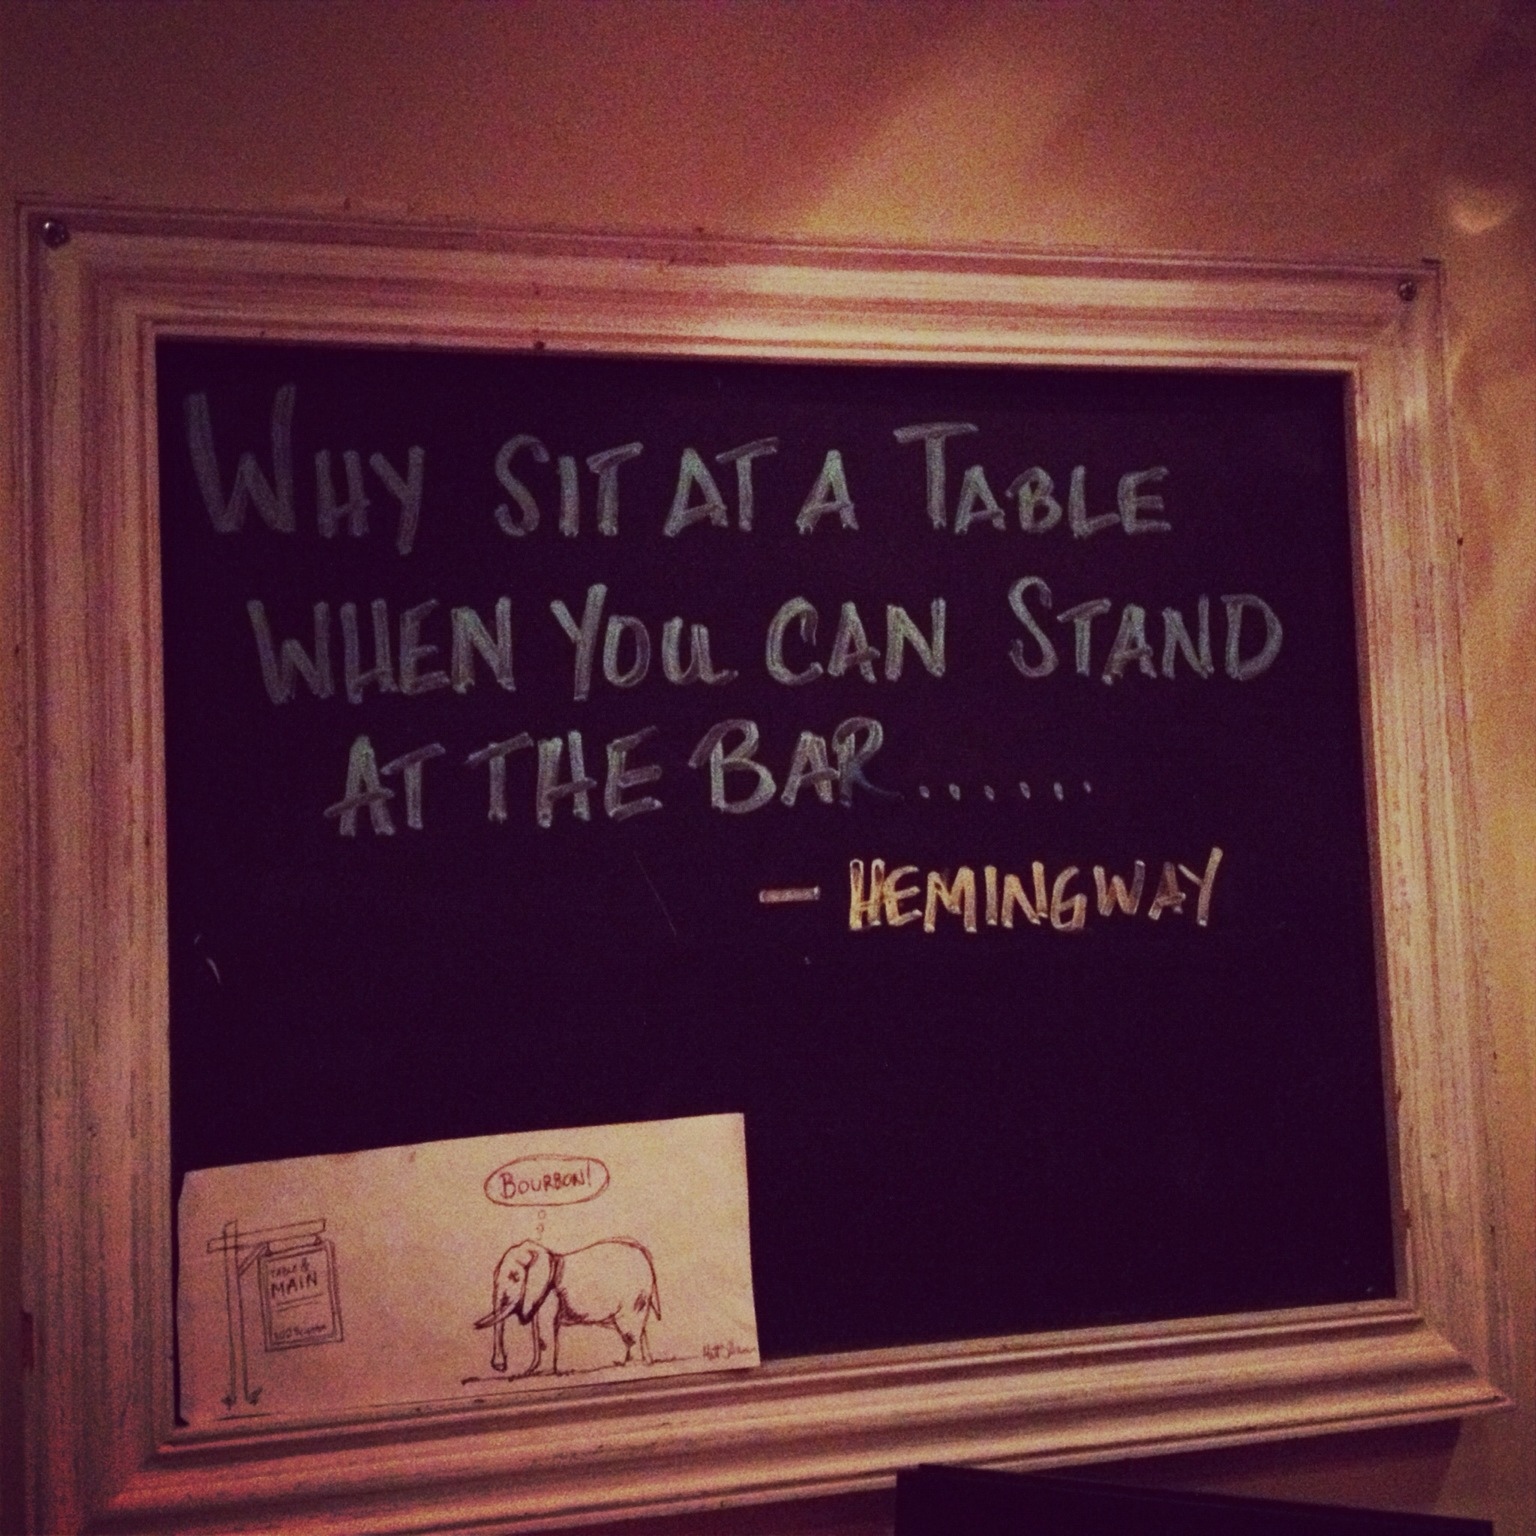 WHY SIT AT A TABLE
WHEN YOU CAN STAND
AT THE BAR......
- HEMINGWAY
BOURBON!
TABLE &
MAIN